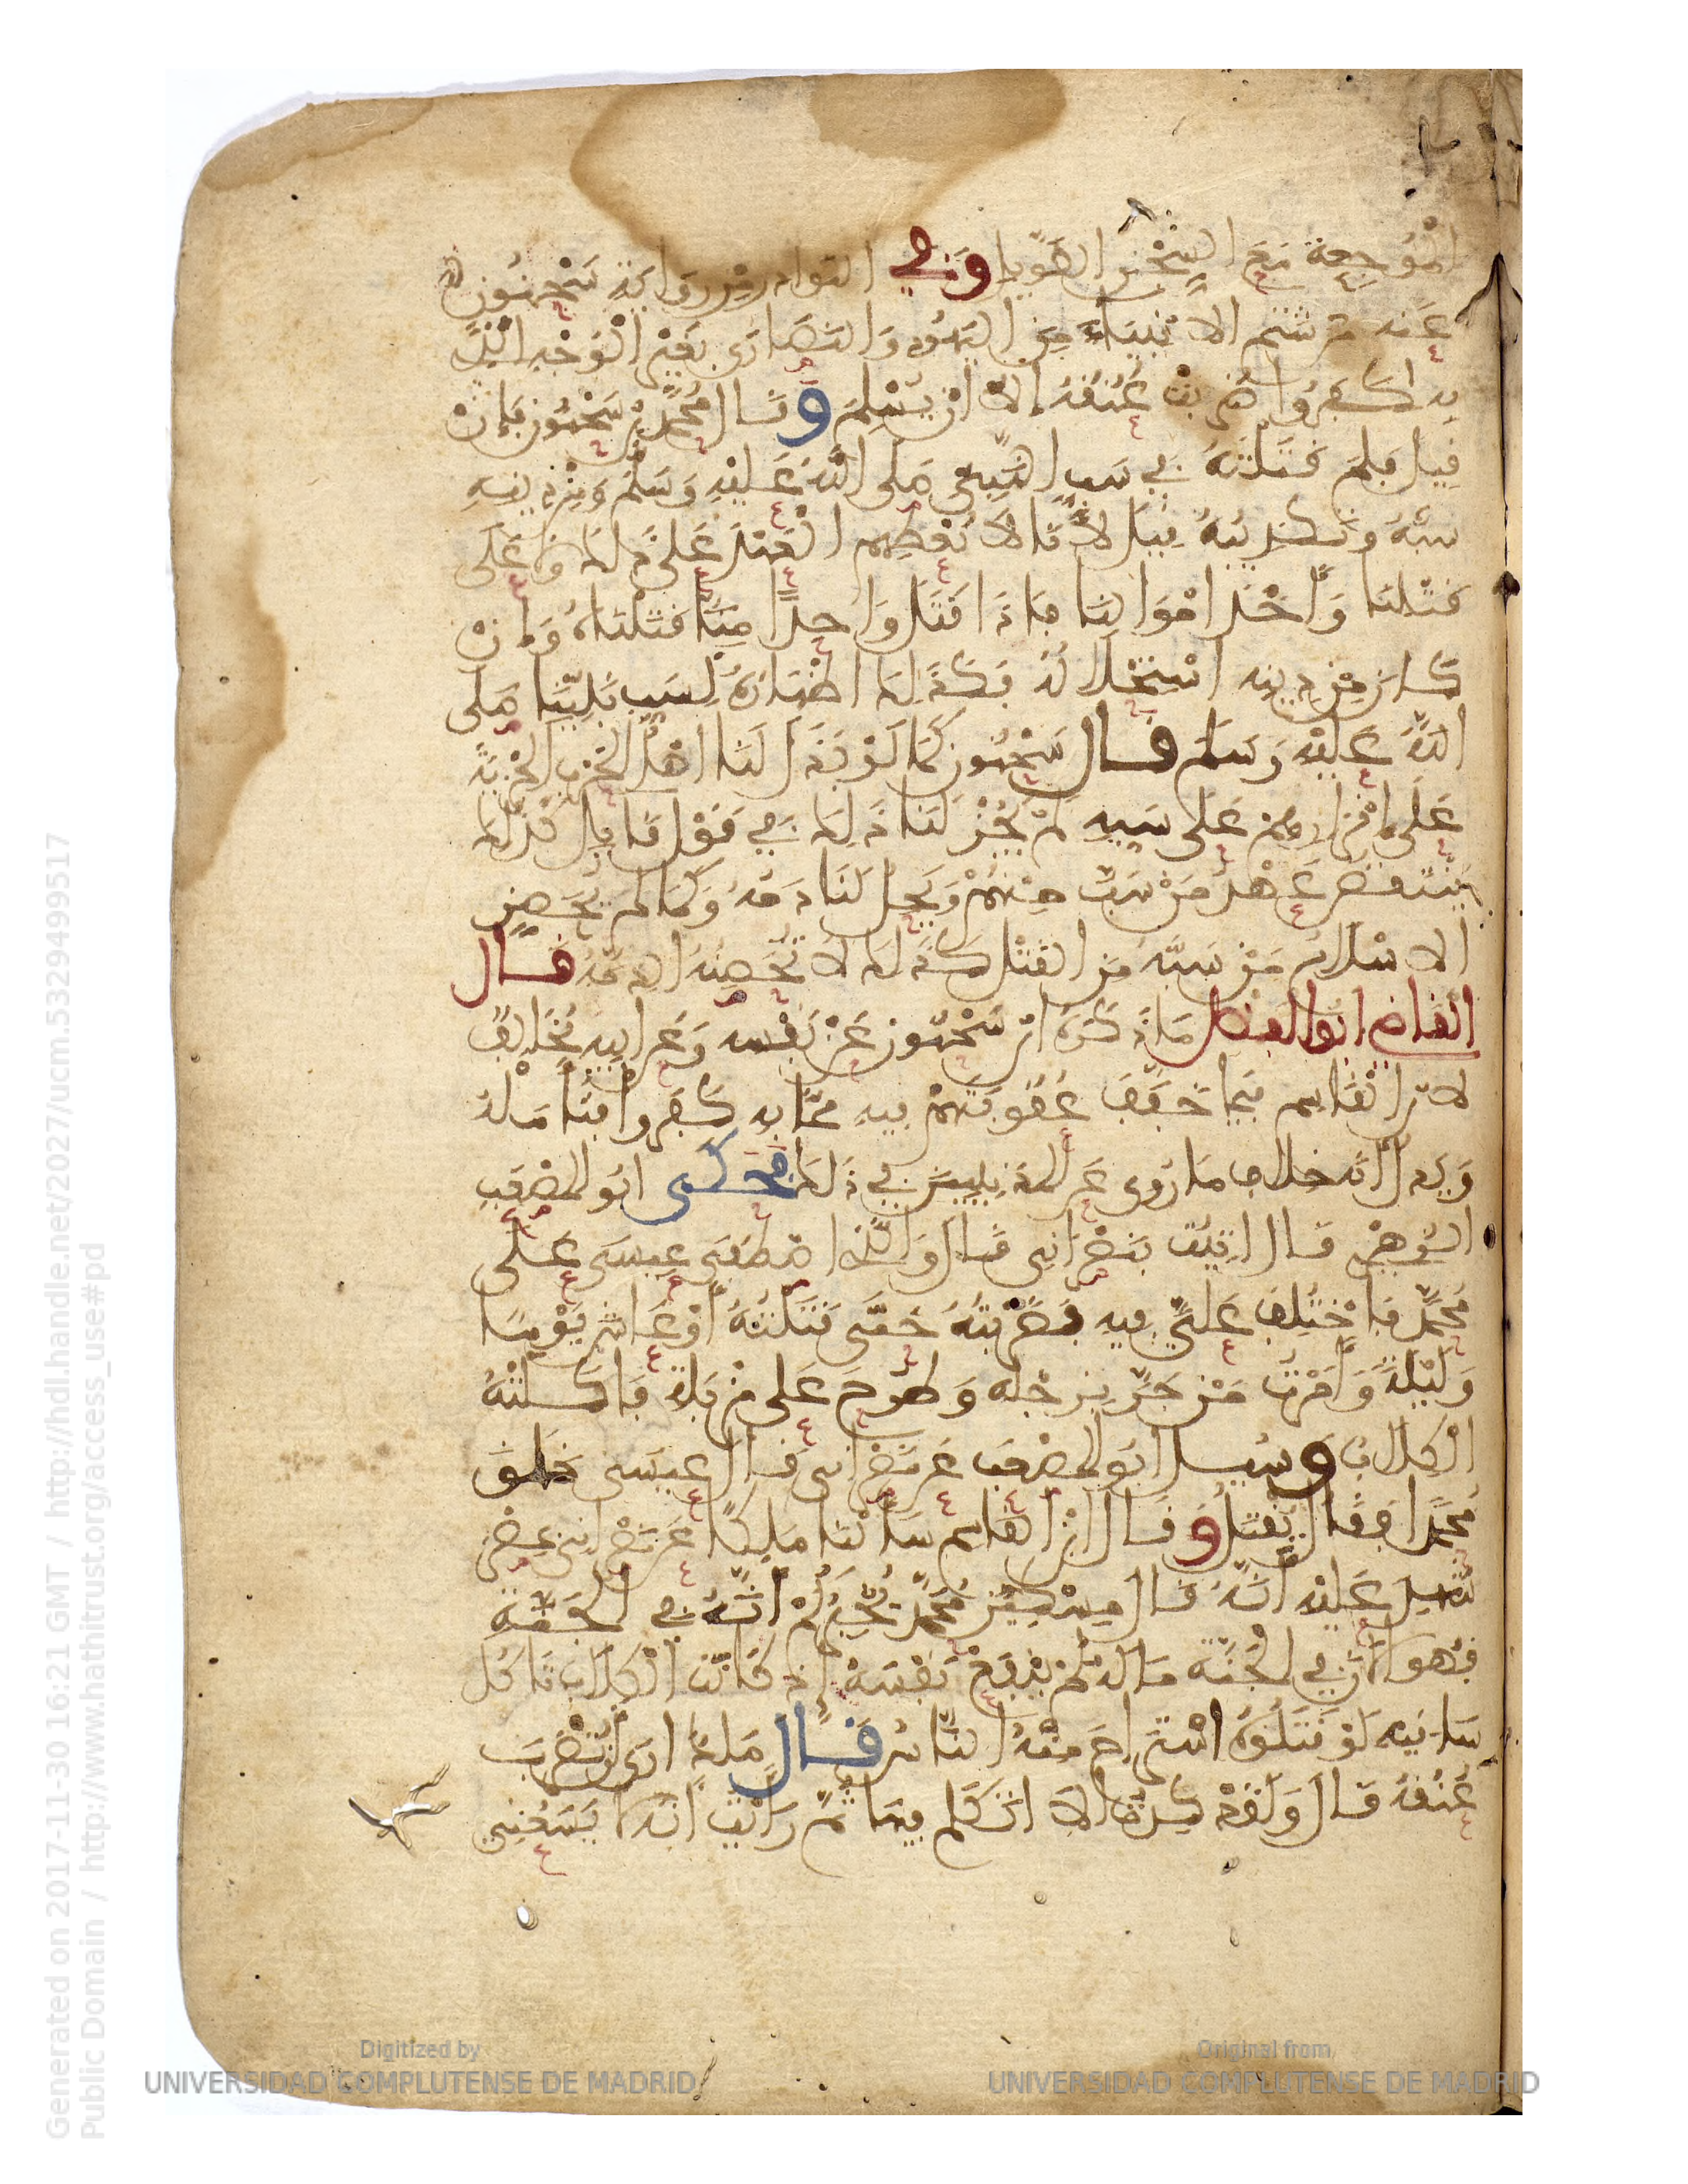 الْمُوجِعة مَعَ السِّجْنِ الطَّوِيلِ وَفِي النَّوَادِرِ مِن رِوَايَةِ سَحْنُون
عَنه مَن شَتَمَ الانْبِيَاءَ مِنَ اليَهُودِ وَالنَّصَارَى بِغَيْرِ الْوَجْهِ الَّذِي
بِه كَفَرُوا ضُرِبَتْ عُنُقُهُ إِلاّ أَنْ يُسْلِمَ وَقَال مُحَمَّد بْن سَحْنُون فَإِنْ
قِيلَ فَلِمَ قَتَلْتَهُ فِي سَبِّ النَّبِيِّ صَلى اللَّهُ عَلَيْهِ وَسَلَّمَ وَمِنْ دِينِهِ
سَبُّهُ وَتَكْذِيبُهُ قِيلَ لأَنَّا لاَ نُعْطِهِم الْعَهْدَ عَلَى ذَلِكَ وَلاَ عَلَى
قَتْلِنَا وَأَخْذِ امْوَالِنَا فَإِذَا قَتَلَ وَاحِدًا مِنَّا قَتَلْنَاهُ وَإِنْ
كَانَ مِن دِينِه اسْتِحْلالُهُ فَكَذَلِكَ اظْهَارُهُ لِسَبِّ نَبِيِّنَا صَلى
اللَّهُ عَلَيْهِ وَسَلم قَال سَحْنُون كَمَا لَوْ بَذَلَ لَنَا اهْلُ الْحَرْبِ الْجِزْيَةَ
عَلَى إِقْرَارِهِم عَلَى سَبِّهِ لَمْ يَجُزْ لَنَا ذَلِكَ فِي قَوْلِ قَائِلٍ كَذَلِكَ
يَنْتَقِضُ عَهْدُ مَنْ سَبَّ مِنْهُمْ وَيَحِلُّ لَنَا دَمُهُ وَكَمَا لَمْ يُحَصِّنِ
الاسْلاَمُ مَنْ سَبَّهُ مِنَ الْقَتْلِ كَذَلِكَ لاَ تُحَصِّنُهُ الذِّمَّةُ قَال
الْقَاضِي ابُو الْفَضْل مَا ذَكَرَهُ ابْن سَحْنُون عَنْ نَفْسِهِ وَعَن ابِيهِ مُخَالِفٌ
لابْنِ الْقَاسِم فِيمَا خَفَّفَ عُقُوبَتَهُمْ فِيهِ مِمَّا بِهِ كَفَرُوا فَتَأَمَّلْهُ
وَيَدُلُّ أَنَّه خِلافُ مَا رُوِيَ عَنِ الْمَدَنِيِّينَ فِي ذَلِكَ فَحَكَى ابُو الْمُصْعَبِ
الزُّهْرِيُّ قَالَ اتِيتُ بِنَصْرَانِيٍّ قَالَ وَالَّذِي اصْطَفَى عِيسَى عَلَى
مُحَمَّدٍ فَاخْتُلِفَ عَلَيَّ فِيهِ فَضَرَبْتُهُ حَتَّى قَتَلْتُهُ أَوْ عَاشَ يَوْمًا
وَلَيْلَةً وَأَمَرْتُ مَنْ جَرَّ بِرِجْلِهِ وَطُرِحَ عَلَى مَزْبَلَةٍ فَأَكَلَتْهُ
الْكِلاَبُ وَسُئِلَ ابُو الْمُصْعَبِ عَن نَصْرَانِيٍّ قَالَ عِيسَى خَلَقَ
مُحَمَّدًا فَقَالَ يُقْتَلُ وَقَالَ ابْنُ الْقَاسِم سَأَلْنَا مَالِكًا عَن نَصْرَانِيٍّ بِمِصْرَ
شُهِدَ عَلَيْهِ أَنَّهُ قَالَ مِسْكِينٌ مُحَمَّدٌ يُخْبِرُكُمْ أَنَّهُ فِي الْجَنَّةِ
فَهُوَ الآنَ فِي الْجَنَّةِ مَا لَهُ لَمْ يَنْفَعْ نَفْسَهُ إِذْ كَانَتِ الْكِلاَبُ تَاكُل
سَاقَيْهِ لَوْ قَتَلُوهُ اسْتَرَاحَ مِنْهُ النَّاسُ قَالَ مَالِكٌ ارَى أَنْ تُضْرَبَ
عُنُقُهُ قَالَ وَلَقَدْ كِدْتُ الاَّ اتَكَلَّمَ فِيهَا ثُمَّ رَأَيْتُ أَنَّهُ لاَ يَسَعُنِي